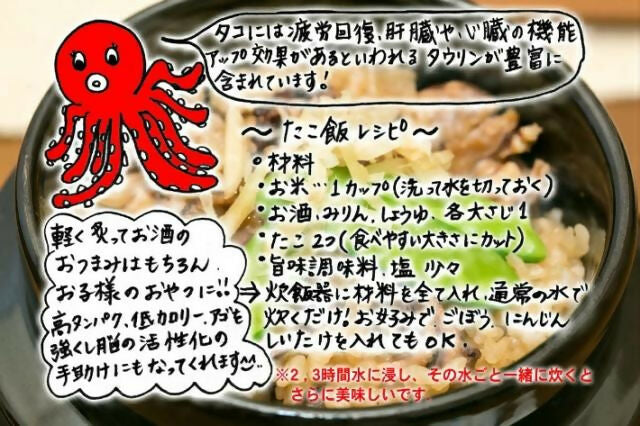 タコには疲労回復、肝臓や、心臓の機能
アップ効果があるといわれるタウリンが豊富に
含まれています！
～たこ飯レシピ～
・材料
・お米…1カップ(洗って水を切っておく)
・お酒、みりん、しょうゆ、各大さじ1
・たこ2つ(食べやすい大きさにカット)
・旨味調味料、塩少々
⇒炊飯器に材料を全て入れ、通常の水で
炊くだけ！お好みで、ごぼう、にんじん
しいたけを入れてもOK.
※2,3時間水に浸し、その水ごと一緒に炊くと
さらに美味しいです
軽く炙ってお酒の
おつまみはもちろん、
お子様のおやつに!!
高タンパク、低カロリー、
強くし脳の活性化の
手助けにもなってくれます